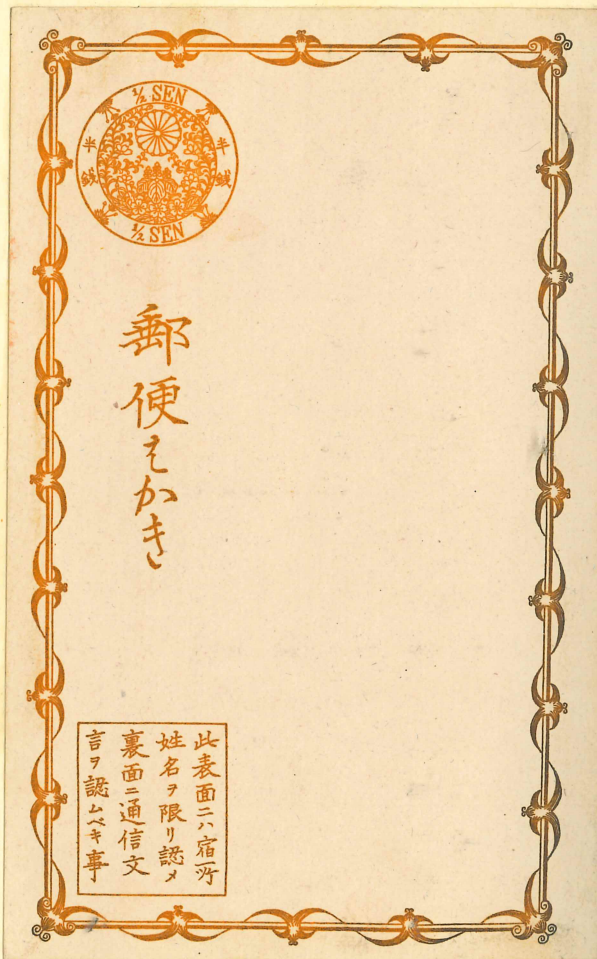 ½ SEN
半銭
半銭
½ SEN
郵便はかき
此表面ニハ宿所
姓名ヲ限リ認メ
裏面ニ通信文
言ヲ認ムベキ事